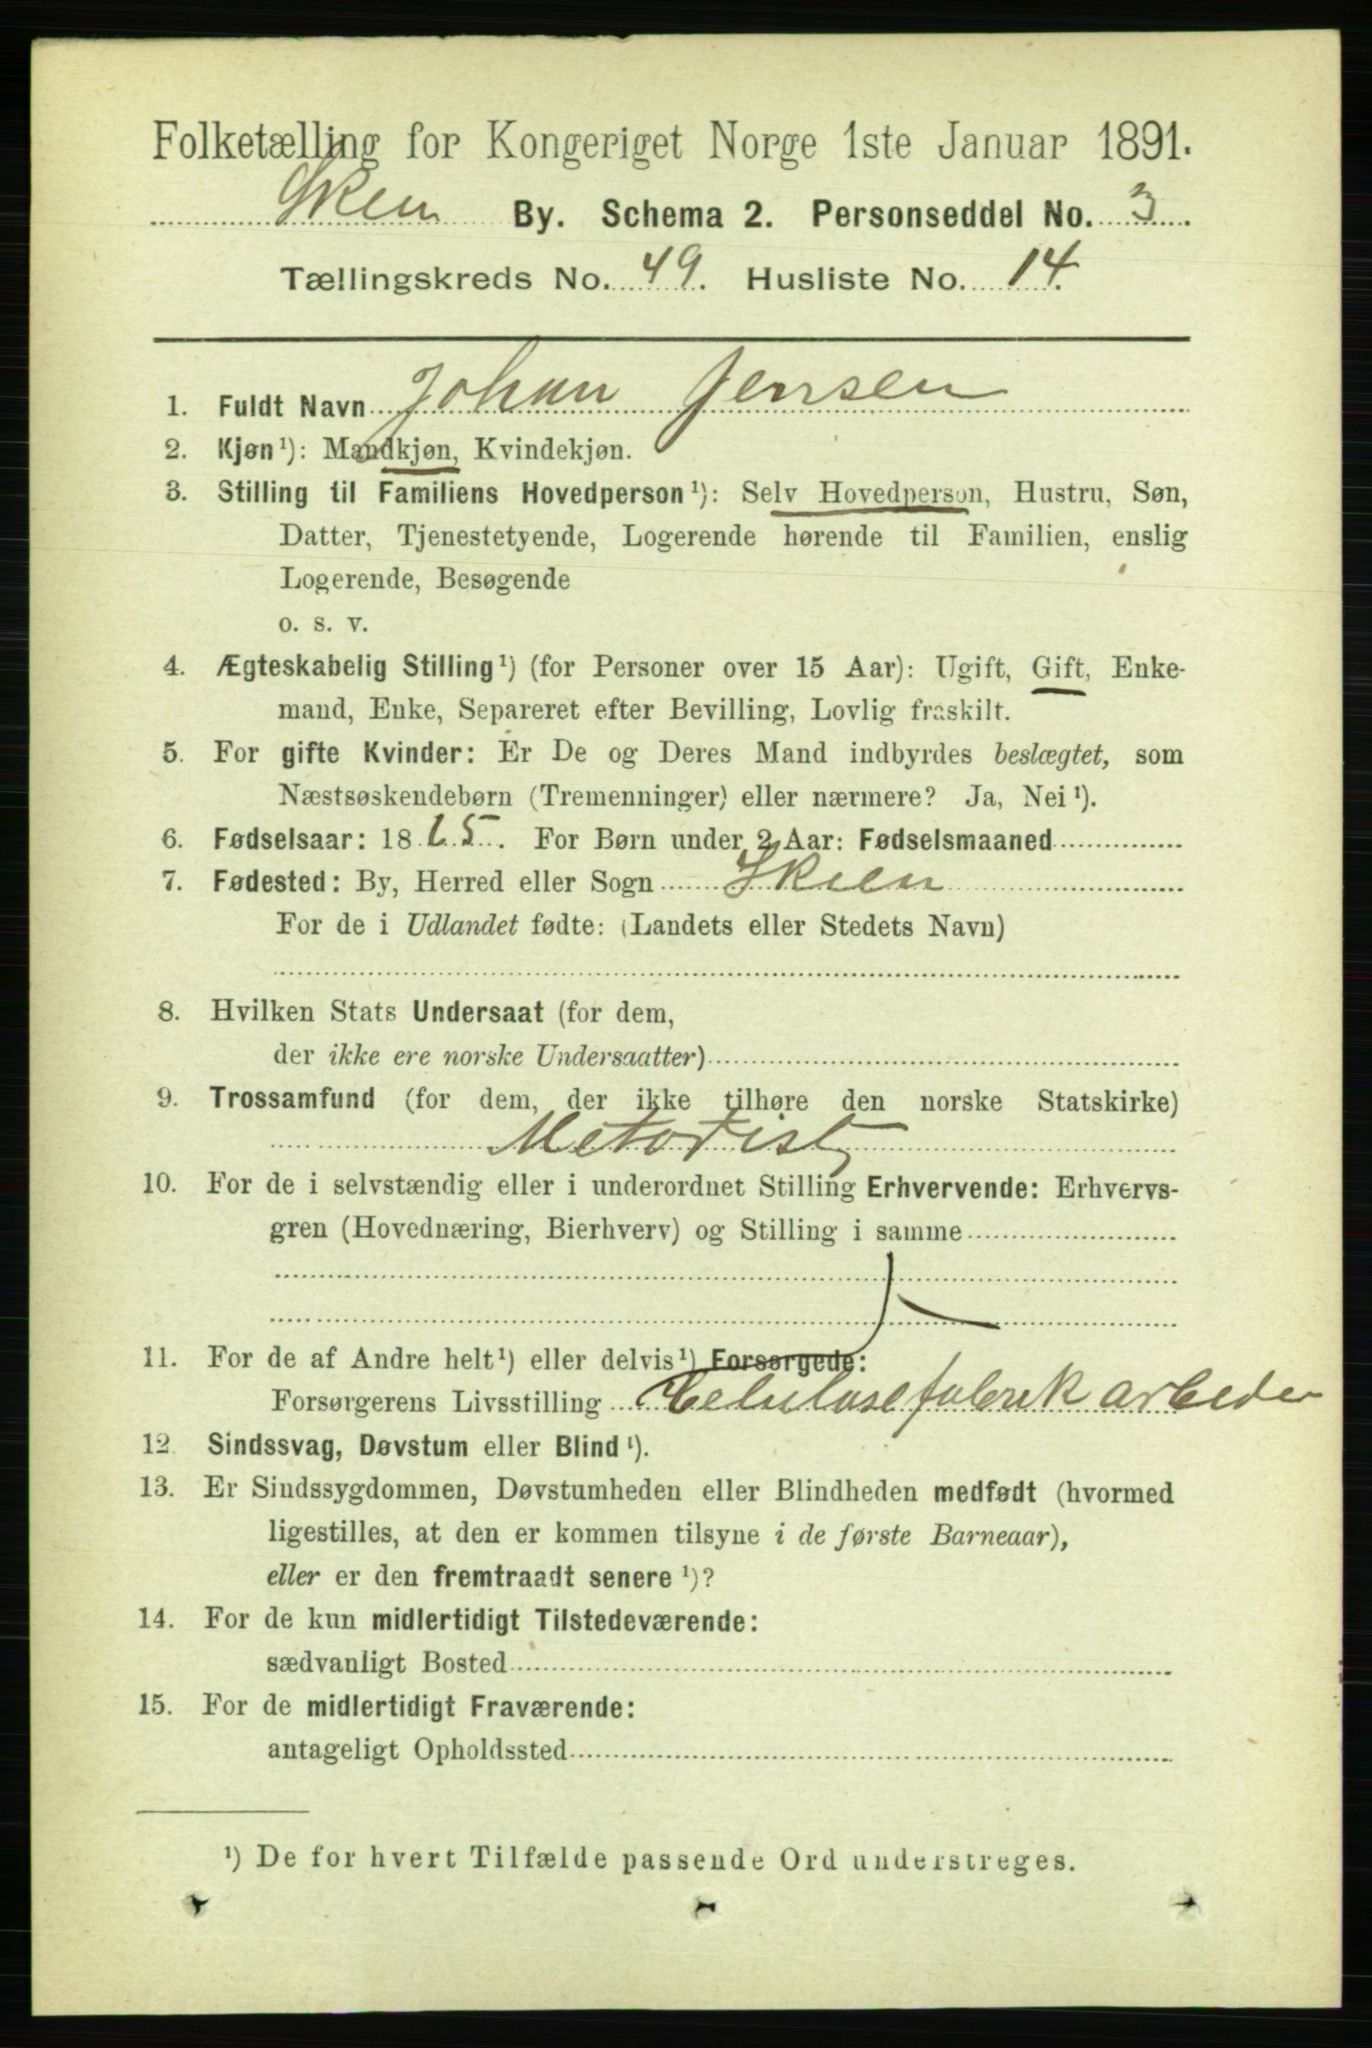 Folketælling for Kongeriget Norge 1ste Januar 1891.
Skien By. Schema 2. Personseddel No. 3.
Tællingskreds No. 49. Husliste No. 14.
1. Fuldt Navn Johan Jensen
2. Kjøn¹): Mandkjøn, Kvindekjøn.
3. Stilling til Familiens Hovedperson¹): Selv Hovedperson, Hustru, Søn,
Datter, Tjenestetyende, Logerende hørende til Familien, enslig
Logerende, Besøgende
o. s. v.
4. Ægteskabelig Stilling¹) (for Personer over 15 Aar): Ugift, Gift, Enke-
mand, Enke, Separeret efter Bevilling, Lovlig fraskilt.
5. For gifte Kvinder: Er De og Deres Mand indbyrdes beslægtet, som
Næstsøskendebørn (Tremenninger) eller nærmere? Ja, Nei¹).
6. Fødselsaar: 1865. For Børn under 2 Aar: Fødselsmaaned
7. Fødested: By, Herred eller Sogn Skien
For de i Udlandet fødte: (Landets eller Stedets Navn)
8. Hvilken Stats Undersaat (for dem,
der ikke ere norske Undersaatter)
9. Trossamfund (for dem, der ikke tilhøre den norske Statskirke)
Metodist
10. For de i selvstændig eller i underordnet Stilling Erhvervende: Erhvervs-
gren (Hovednæring, Bierhverv) og Stilling i samme
11. For de af Andre helt¹) eller delvis¹) Forsørgede:
Forsørgerens Livsstilling Celulosefabrik arbeider
12. Sindssvag, Døvstum eller Blind¹).
13. Er Sindssygdommen, Døvstumheden eller Blindheden medfødt (hvormed
ligestilles, at den er kommen tilsyne i de første Barneaar),
eller er den fremtraadt senere¹)?
14. For de kun midlertidigt Tilstedeværende:
sædvanligt Bosted
15. For de midlertidigt Fraværende:
antageligt Opholdssted
¹) De for hvert Tilfælde passende Ord understreges.